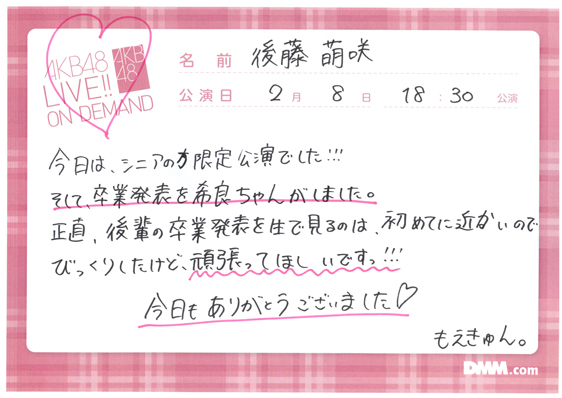 AKB48
LIVE!!
ON DEMAND
AKB
48
名前 後藤 萌咲
公演日 2月 8日 18:30 公演
今日は、シニアの方限定公演でした!!!
そして、卒業発表を希良ちゃんがしました。
正直、後輩の卒業発表を生で見るのは、初めてに近かいので
びっくりしたけど、頑張ってほしいですっ!!!
今日もありがとうございました♡
もえきゅん。
DMM.com